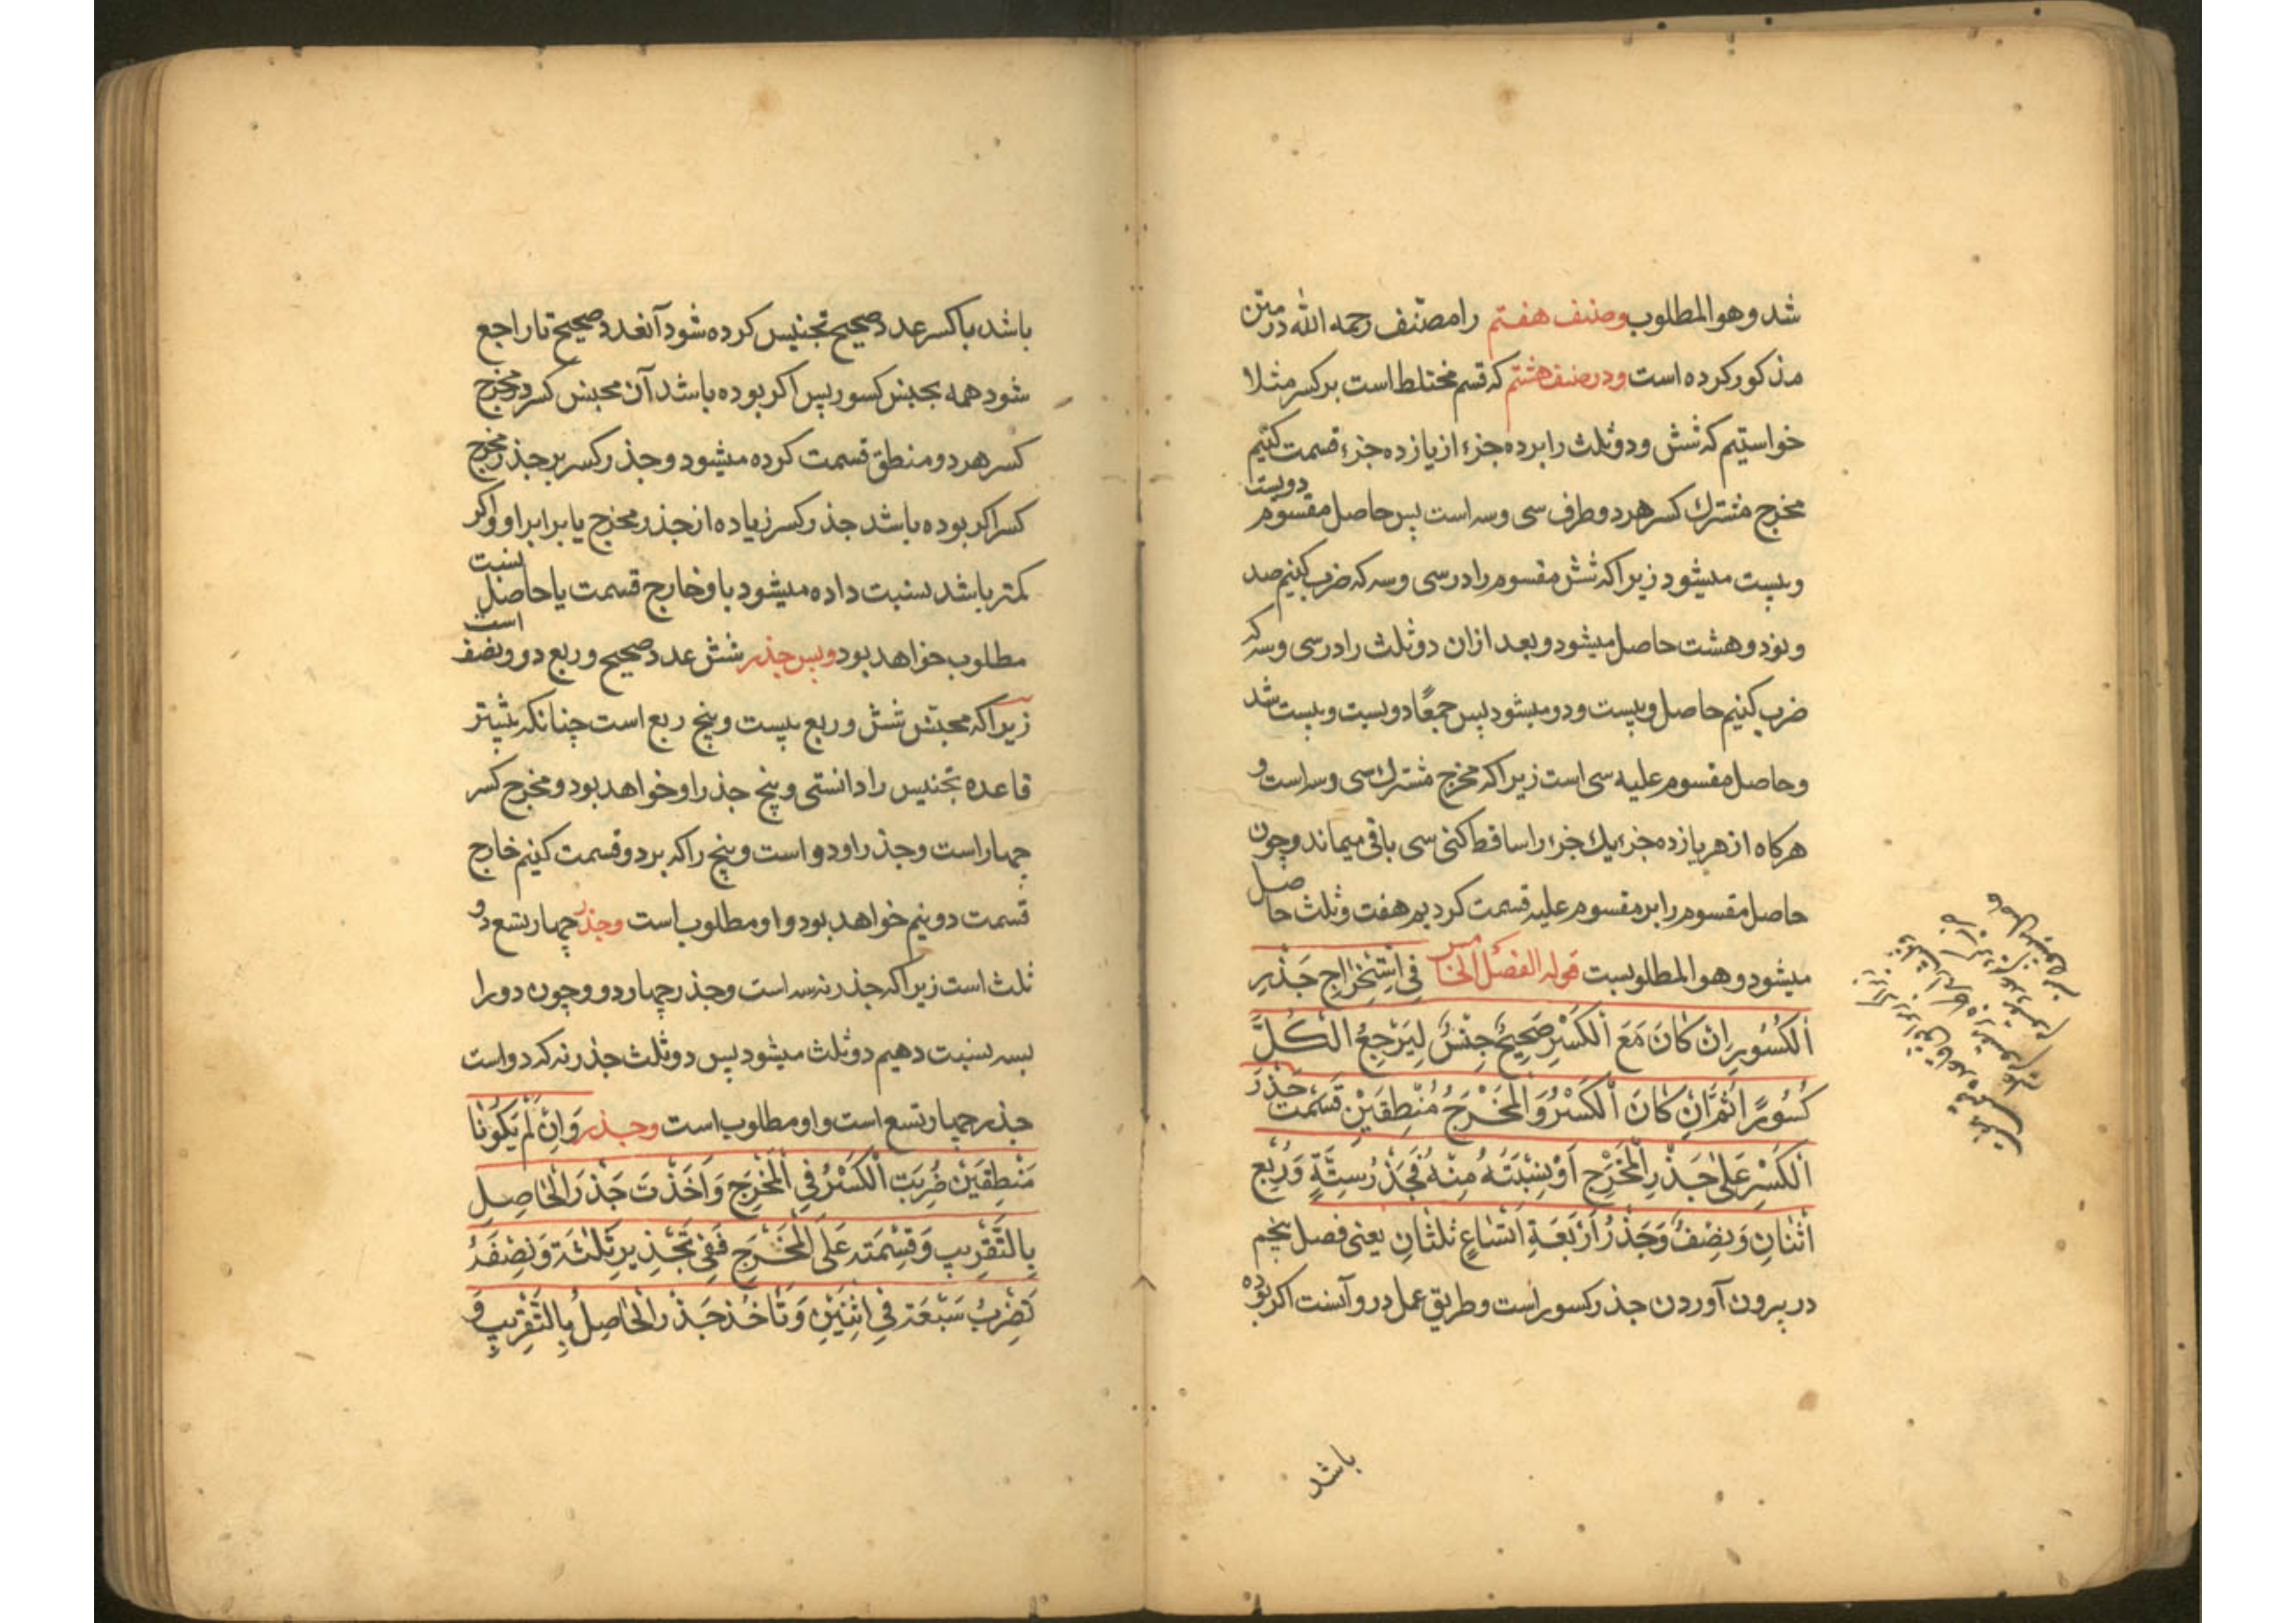 شد وهو المطلوب وصنف هفتم را مصنف رحمه الله در متن
مذکور کرده است ودر صنف هشتم که قسم مختلط است بر کسر مثلا
خواستیم که شش ودو ثلث را برده جزء از یازده جزء قسمت کنیم
مخرج مشترك کسر هر دو طرف سی وسه است پس حاصل مقسوم دویست
وبیست میشود زیرا که شش مقسوم را در سی وسه که ضرب کنیم صد
ونود وهشت حاصل میشود وبعد ازان دو ثلث را در سی وسه که
ضرب کنیم حاصل وبیست ودو میشود پس جمعًا دویست وبیست شد
وحاصل مقسوم علیه سی است زیرا که مخرج مشترك سی وسه است و
هرکاه از هر یازده جزء یك جزء را ساقط کنی سی باقی میماند وچون
حاصل مقسوم را بر مقسوم علیه قسمت کردیم هفت وثلث حاصل
میشود وهو المطلوبست قوله الفصل الخامس فِی اسْتِخْرَاجِ جَذْرِ
اَلْکُسُورِ اِنْ کَانَ مَعَ اَلْکَسْرِ صَحِیْحٌ جِنْسٌ لِیَرْجِعَ الْکُلُّ
کُسُورًا ثُمَّ اِنْ کَانَ اَلْکَسْرُ وَالْمَخْرَجُ مُنْطِقَیْنِ قَسَمْتَ جَذْرَ
اَلْکَسْرِ عَلٰی جَذْرِ الْمَخْرَجِ اَوْ نِسْبَتَهُ مِنْهُ فَجَذْرُ سِتَّةٍ وَرُبْعٍ
اَثْنَانِ وَنِصْفٌ وَجَذْرُ اَرْبَعَةِ اَتْسَاعٍ ثُلْثَانِ یعنی فصل پنجم
در بیرون آوردن جذر کسور است وطریق عمل درو آنست اکر بوده
باشد
باشد با کسر عدد صحیح تجنیس کرده شود آنعدد صحیح تا راجع
شود همه بجنس کسور پس اکر بوده باشد آن مجنس کسر در مخرج
کسر هر دو منطق قسمت کرده میشود وجذر کسر بر جذر مخرج
کسر اکر بوده باشد جذر کسر زیاده از جذر مخرج یا برابر او واکر
کمتر باشد نسبت داده میشود باو خارج قسمت یا حاصل نسبت
مطلوب خواهد بود وپس جذر شش عدد صحیح وربع دو ونصف است
زیرا که مجنس شش وربع بیست وپنج ربع است چنانکه بیشتر
قاعده تجنیس را دانستی وپنج جذر او خواهد بود ومخرج کسر
چهار است وجذر او دو است وپنج را که بر دو قسمت کنیم خارج
قسمت دو نیم خواهد بود واو مطلوب است وجذر چهار تسع دو
ثلث است زیرا که جذر نه سه است وجذر چهار دو وچون دو را
بسه نسبت دهیم دو ثلث میشود پس دو ثلث جذر نه که دو است
جذر چهار تسع است واو مطلوب است وجذر وَاِنْ لَمْ یَکُونَا
مَنْطِقَیْنِ ضُرِبَتِ الْکَسْرُ فِی الْمَخْرَجِ وَاَخَذْتَ جَذْرَ الْحَاصِلِ
بِالتَّقْرِیبِ وَقِسْمَتَه عَلَی الْمَخْرَجِ فَفِی تَجْذِیرِ ثَلٰثَةَ وَنِصْفَ
تَضْرِبُ سَبْعَةَ فِی اثْنَیْنِ وَتَأخُذ جَذْرَ الْحَاصِلِ بِالتَّقْرِیبِ وَ